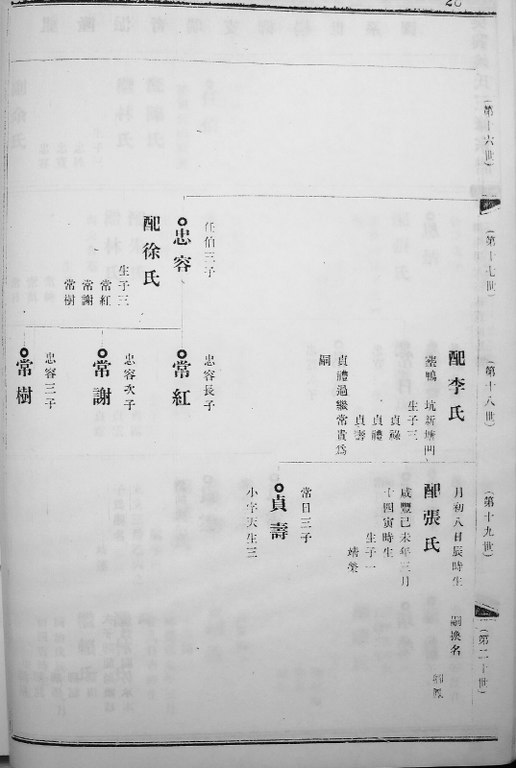 (第十六世)
(第十七世)
(第十八世)
(第十九世)
(第二十世)
任伯三子
忠容
配徐氏
生子三
常紅
常謝
常樹
配李氏
生子三
貞祿
貞禮
貞壽
貞禮過繼常貴爲
嗣
忠容長子
常紅
忠容次子
常謝
忠容三子
常樹
月初八日辰時生
配張氏
咸豐己未年三月
十四寅時生
生子一
靖榮
常日三子
貞壽
小字天生三
嗣換名